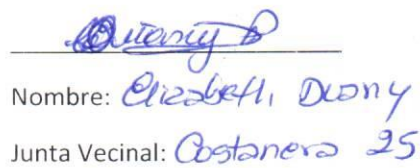 Nombre: Elizabeth, Duany
Junta Vecinal: Costanera 25